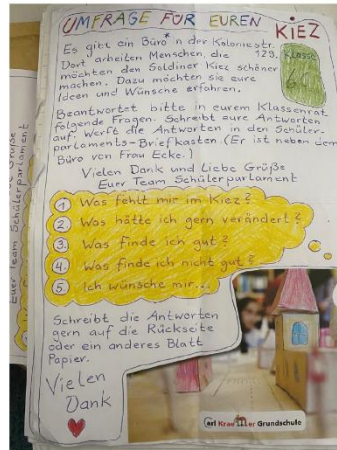 UMFRAGE FÜR EUREN KIEZ
Es gibt ein Büro* n der Koloniestr.
129.
Klasse
Dort arbeiten Menschen, die
möchten den Soldiner Kiez schöner
machen. Dazu möchten sie eure
Ideen und Wünsche erfahren.
Beantwortet bitte in eurem Klassenrat
folgende Fragen. Schreibt eure Antworten
auf. Werft die Antworten in den Schüler-
parlaments-Briefkasten. (Er ist neben dem
Büro von Frau Ecke.)
Vielen Dank und liebe Grüße
Euer Team Schülerparlament
1. Was fehlt mir im Kiez?
2. Was hätte ich gern verändert?
3. Was finde ich gut?
4. Was finde ich nicht gut?
5. Ich wünsche mir...
Schreibt die Antworten
gern auf die Rückseite
oder ein anderes Blatt
Papier.
Vielen
Dank
Carl Kraemer Grundschule
Grüße
Euer Team Schülerparlament